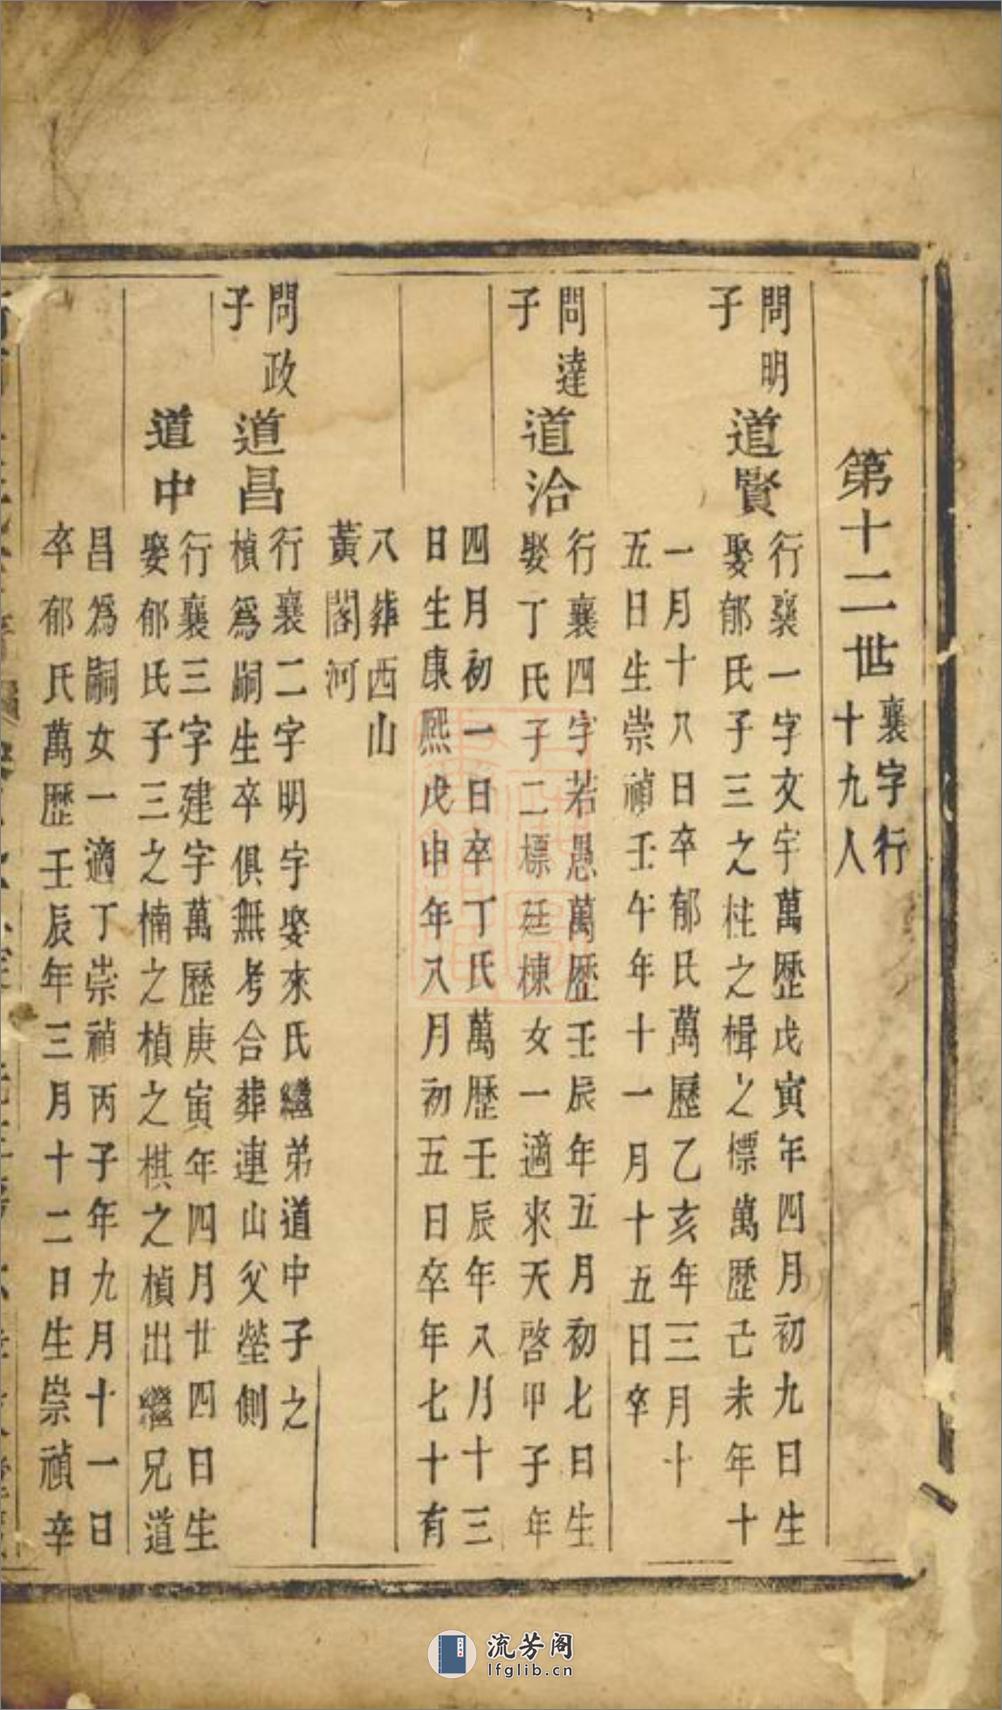 第十二世
襄字行
十九人
問明
子
道賢
行襄一字文宇萬歷戊寅年四月初九日生
娶郁氏子三之柱之楫之標萬歷己未年十
一月十八日卒郁氏萬歷乙亥年三月十
五日生崇禎壬午年十一月十五日卒
問達
子
道洽
行襄四字若愚萬歷壬辰年五月初七日生
娶丁氏子二標廷棟女一適來天啓甲子年
四月初一日卒丁氏萬歷壬辰年八月十三
日生康熙戊申年八月初五日卒年七十有
八葬西山
黃閣河
問政
子
道昌
行襄二字明宇娶來氏繼弟道中子之
楨爲嗣生卒俱無考合葬連山父塋側
道中
行襄三字建宇萬歷庚寅年四月廿四日生
娶郁氏子三之楠之楨之棋之楨出繼兄道
昌爲嗣女一適丁崇禎丙子年九月十一日
卒郁氏萬歷壬辰年三月十二日生崇禎辛
流芳阁
lfglib.cn